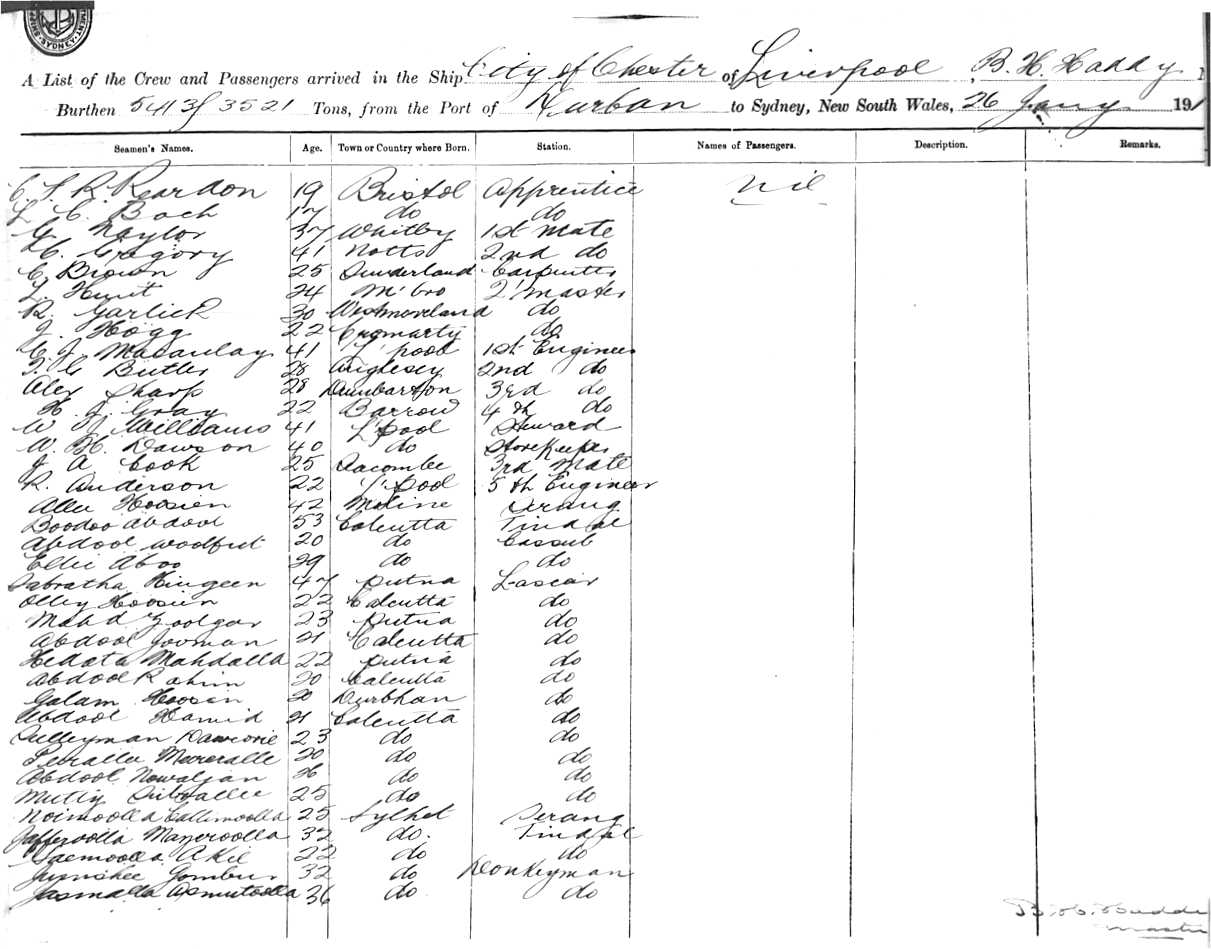 SYDNEY
A List of the Crew and Passengers arrived in the Ship City of Chester of Liverpool B. H. Haddy
Burthen 5413/3521 Tons, from the Port of Durban to Sydney, New South Wales, 26 Jany 191
Seamen's Names. Age. Town or Country where Born. Station. Names of Passengers. Description. Remarks.
C. S. R. Reardon 19 Bristol Apprentice nil
L. C. Bach 17 do do
G. Naylor 37 Whitby 1st Mate
H. Gregory 41 Notts 2nd do
C. Brown 25 Sunderland Carpenter
L. Hunt 24 M'bro 2' Master
R. Garlick 30 Westmoreland do
J. Hogg 22 Cromarty do
C. J. Macaulay 41 L'pool 1st Engineer
T. G. Butler 28 Anglesey 2nd do
Alex Sharp 28 Dumbarton 3rd do
H. J. Gray 22 Barrow 4th do
W. Williams 41 L'pool Steward
W. H. Dawson 40 do Storekeeper
J. A Cook 25 3rd Mate
R. Anderson 22 L'pool 5th Engineer
Allee Hoosien 42 Serang
Boodoo Abdool 53 Calcutta Tindal
Abdool 20 do Cassub
Ellie Aboo 29 do do
Sabratha 47 Putna Lascar
Olley Hoosien 22 Calcutta do
Mahd Goolgar 23 Putna do
Abdool Jooman 21 Calcutta do
Hedata Mahdalla 22 Putna do
Abdool Rahim 20 Calcutta do
Golam Hoosen 20 Durbhan do
Abdool Hamid 21 Calcutta do
Sulleyman 23 do do
20 do do
Abdool 26 do do
25 do do
Noimoolla Callimoolla 25 Sylhet Serang
Jafferoolla Mayeroolla 32 do. Tindal
Saemoolla Akil 22 do do
32 do Donkeyman
Jasmalla Asmutoolla 36 do do
B. H. Hadd
Master